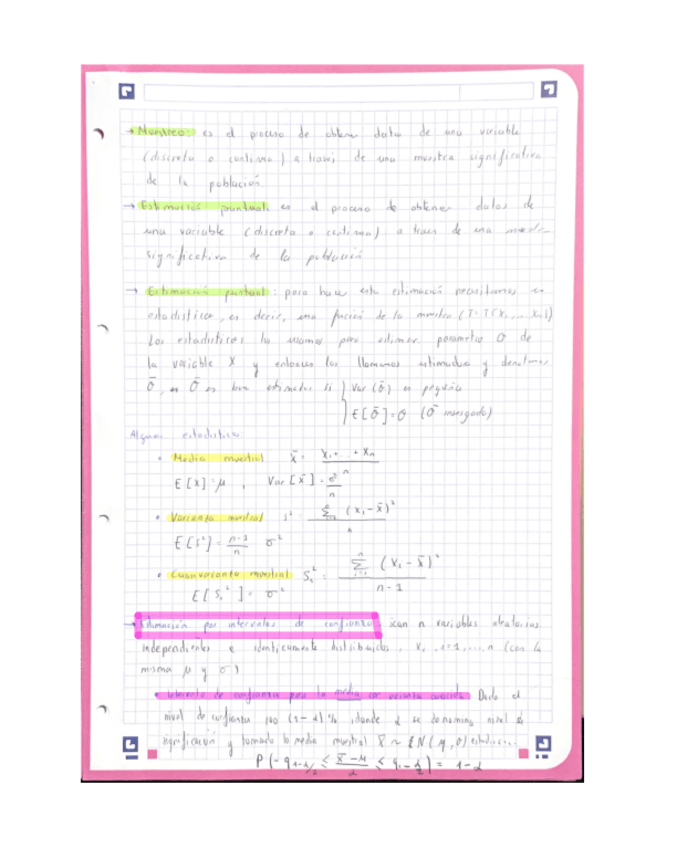 → Muestreo: es el proceso de obtener datos de una variable
(discreta o continua) a través de una muestra significativa
de la población
→ Estimación puntual: es el proceso de obtener datos de
una variable (discreta o continua) a traves de una
significativa de la población
→ Estimación puntual: para hacer esta estimación necesitamos un
estadístico, es decir, una función de la muestra (T=T(X₁,...,Xₙ))
Los estadísticos los usamos para estimar parametro θ de
la variable X y entonces los llamamos estimador y denotamos
θ̄, es θ̄ es buen estimador si { Var (θ̄) es pequeña
E[θ̄]=θ (θ̄ insesgado)
Algunos estadísticos
• Media muestral x̄ = X₁+...+Xₙ / n
E[x̄]=μ, Var[x̄]=σ²/n
• Varianza muestral s² = Σ (xᵢ-x̄)² / n
E[s²]= n-1/n σ²
• Cuasivarianza muestral S₁² = Σ (xᵢ-x̄)² / n-1
E[S₁²] = σ²
→ Estimación por intervalos de confianza: sean n variables aleatorias
independientes e identicamente distribuidas, Xᵢ, i=1,...,n (con la
misma μ y σ)
• Intervalo de confianza para la media con varianza conocida Dado el
nivel de confianza 100 (1-α)%, donde α se denomina nivel de
significación y tomando la media muestral x̄ ~ N(μ,σ)
P(-q₁₋α/₂ ≤ x̄-μ / ≤ q₁₋α/₂) = 1-α